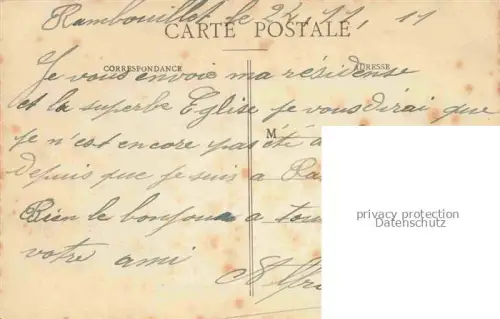 Rambouillet le 22, 11, 11
CARTE POSTALE
CORRESPONDANCE
ADRESSE
Je vous envoie ma résidense
et la superbe Eglise je vous dirai que
je n'est encore pas été a
M
depuis que je suis a
Bien le bonjour a tou
votre ami
privacy protection
Datenschutz